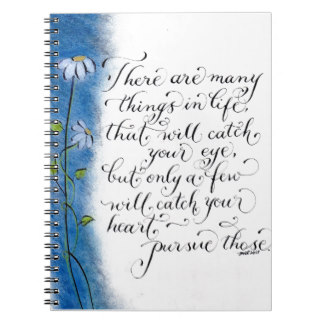 There are many
things in life,
that will catch
your eye,
but only a few
will catch your
heart.
pursue those.